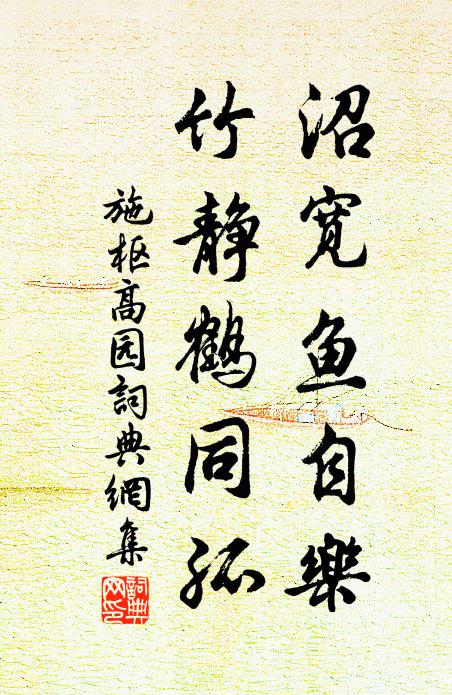 沼宽鱼自樂
竹静鹤同孤
施枢高园詞典網集
詞典網印